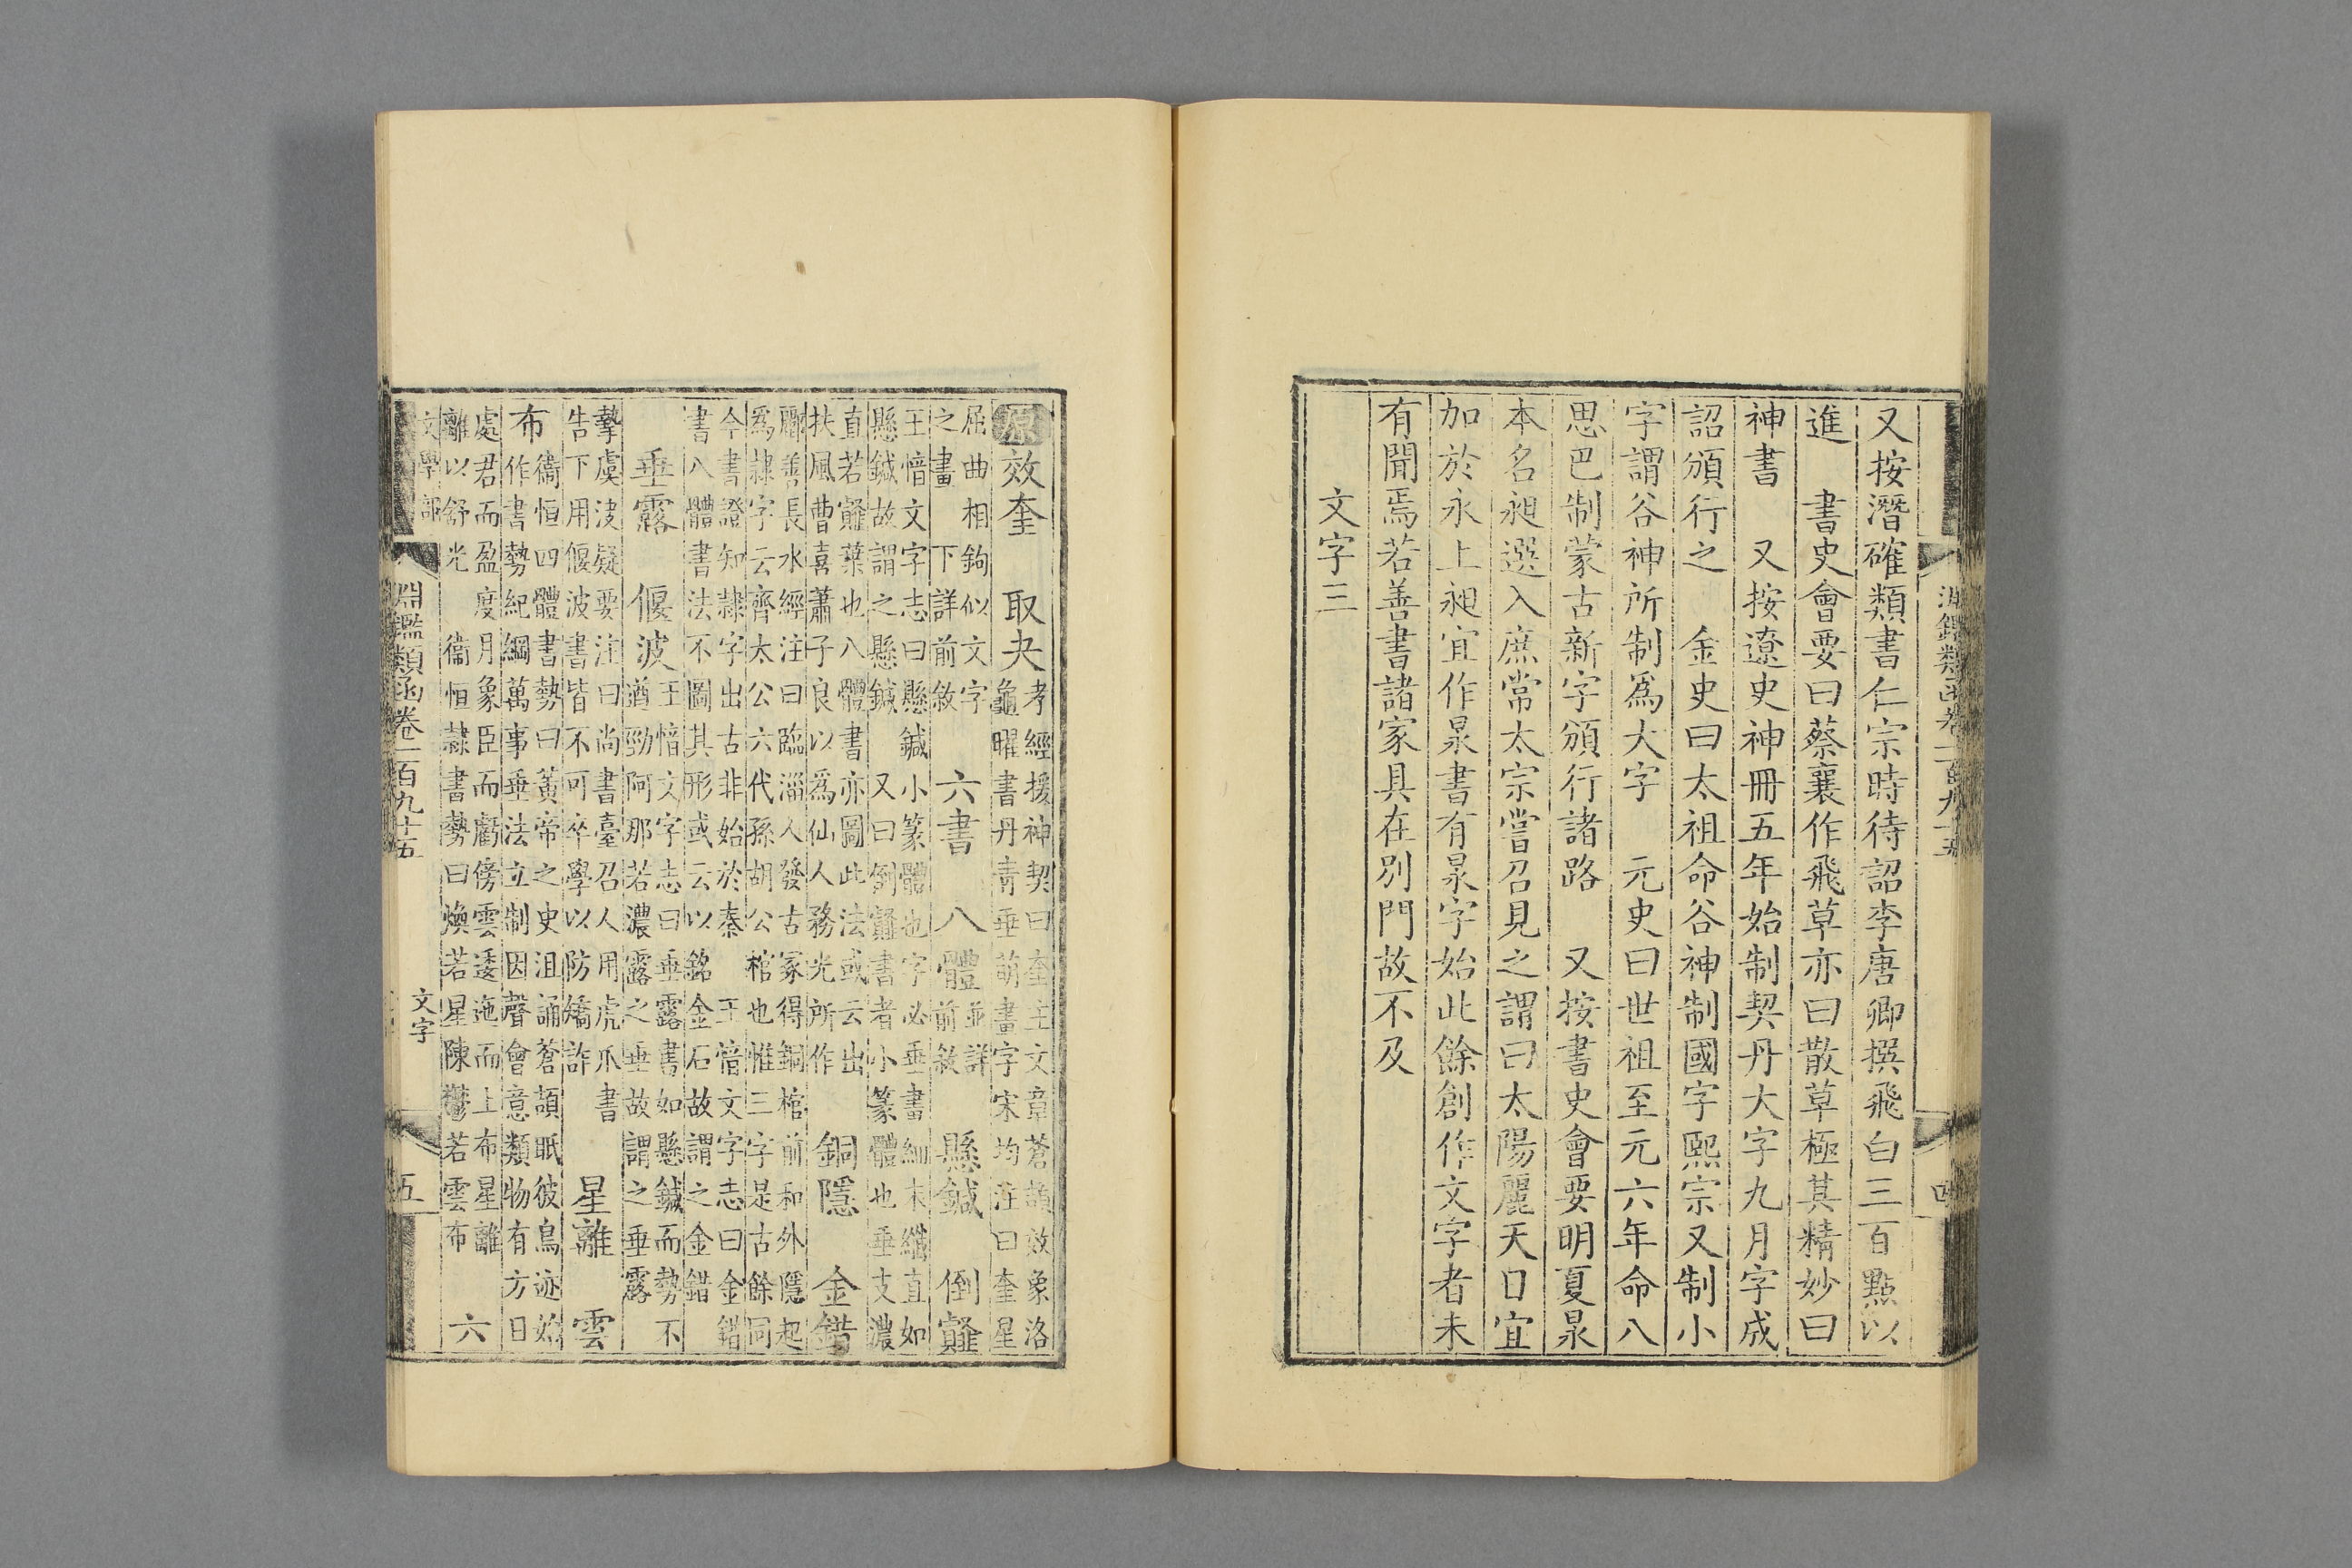 又按潛確類書仁宗時待詔李唐卿撰飛白三百點以
進　書史會要曰蔡襄作飛草亦曰散草極其精妙曰
神書　又按遼史神冊五年始制契丹大字九月字成
詔頒行之　金史曰太祖命谷神制國字熙宗又制小
字謂谷神所制爲大字　元史曰世祖至元六年命八
思巴制蒙古新字頒行諸路　又按書史會要明夏㫤
本名昶選入庶常太宗嘗召見之謂曰太陽麗天日宜
加於永上昶宜作㫤書有㫤字始此餘創作文字者未
有聞焉若善書諸家具在別門故不及
文字三
原效奎　取夬
孝經援神契曰奎主文章蒼頡效象洛
龜曜書丹青垂萌畫字宋均注曰奎星
屈曲相鉤似文字
之畫　下詳前敘
六書　八體
並詳
前敘
懸鍼　倒薤
王愔文字志曰懸鍼小篆體也字必垂畫細末纖直如
懸鍼故謂之懸鍼　又曰倒薤書者小篆體也垂支濃
直若薤葉也八體書亦圖此法或云出
扶風曹喜蕭子良以爲仙人務光所作
銅隱　金錯
酈善長水經注曰臨淄人發古冢得銅棺前和外隱起
爲隸字云齊太公六代孫胡公棺也惟三字是古餘同
今書證知隸字出古非始於秦　王愔文字志曰金錯
書八體書法不圖其形或云以銘金石故謂之金錯
垂露　偃波
王愔文字志曰垂露書如懸鍼而勢不
遒勁阿那若濃露之垂故謂之垂露
摯虞決疑要注曰尚書臺召人用虎爪書
告下用偃波書皆不可卒學以防矯詐
星離　雲
布
衞恒四體書勢曰黃帝之史沮誦蒼頡眂彼鳥迹始
作書勢紀綱萬事垂法立制因聲會意類物有方日
處君而盈度月象臣而虧傍雲逶迤而上布星離
離以舒光　衞恒隸書勢曰煥若星陳鬱若雲布
六
文學部
淵鑑類函卷一百九十五
文字
五